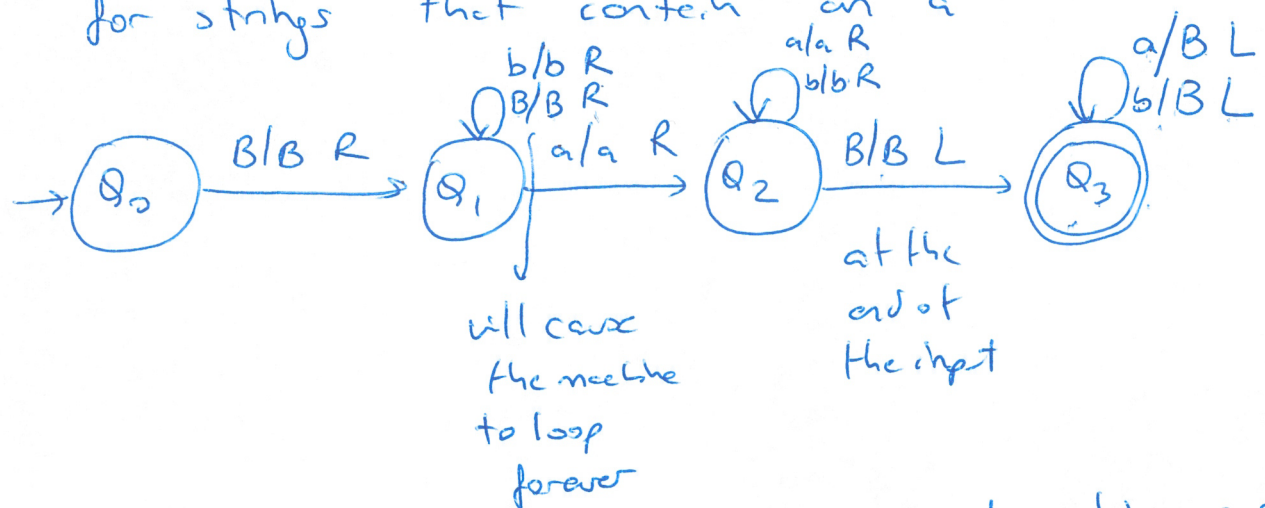 for strings that contain an a
b/b R
B/B R
a/a R
b/b R
a/B L
b/B L
B/B R
a/a R
B/B L
Q0
Q1
Q2
Q3
will cause
the machine
to loop
forever
at the
end of
the input